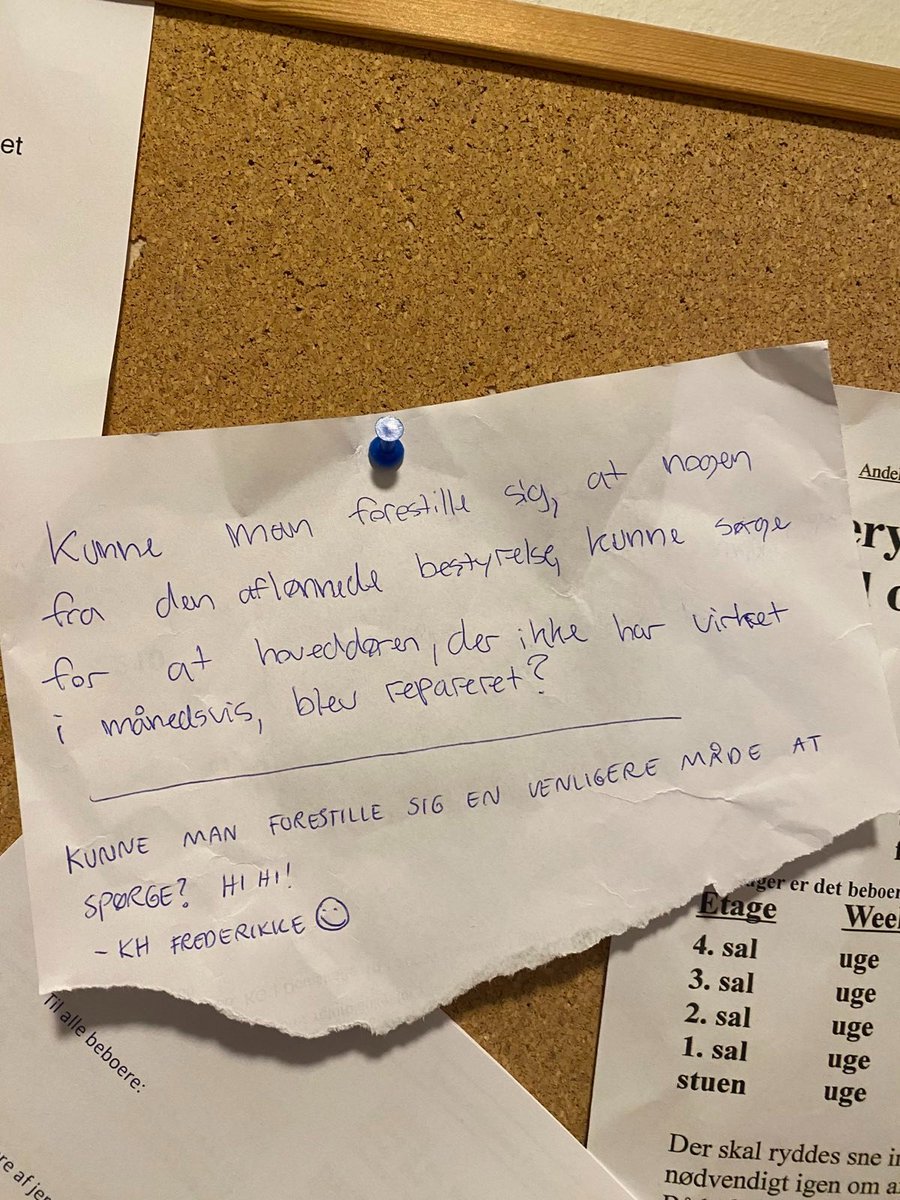 et
Kunne man forestille sig, at nogen
fra den aflønnede bestyrelse, kunne sørge
for at hoveddøren, der ikke har virket
i månedsvis, blev repareret?
KUNNE MAN FORESTILLE SIG EN VENLIGERE MÅDE AT
SPØRGE? HI HI!
- KH FREDERIKKE
er det beboer
Etage
4. sal uge
3. sal uge
2. sal uge
1. sal uge
stuen uge
Der skal ryddes sne
nødvendigt igen om
Til alle beboere: